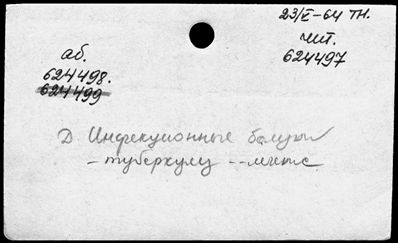 23/V-64 тн.
чит.
624497
аб.
624498.
624499
Д Инфекционные
- туберкулез --